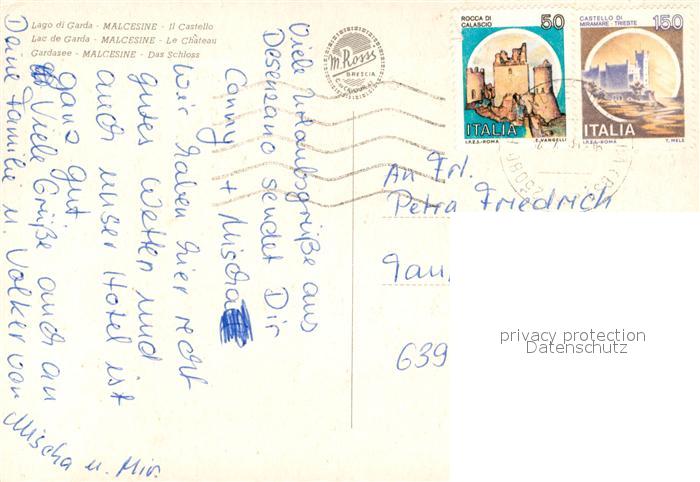 Lago di Garda - MALCESINE - Il Castello
Lac de Garda - MALCESINE - Le Château
Gardasee - MALCESINE - Das Schloss
m. Ross
BRESCIA
ROCCA DI
CALASCIO
50
ITALIA
I.P.Z.S.-ROMA E. VANGELLI
CASTELLO DI
MIRAMARE - TRIESTE
150
ITALIA
I.P.Z.S.-ROMA T. MELE
Viele Urlaubsgrüße aus
Desenzano sendet Dir
Conny + Mischa
Wir haben hier recht
gutes Wetter und
auch unser Hotel ist
ganz gut
Viele Grüße auch an
Deine Familie u. Volker von
Mischa u. Mir.
An Frl.
Petra Friedrich
639
privacy protection
Datenschutz